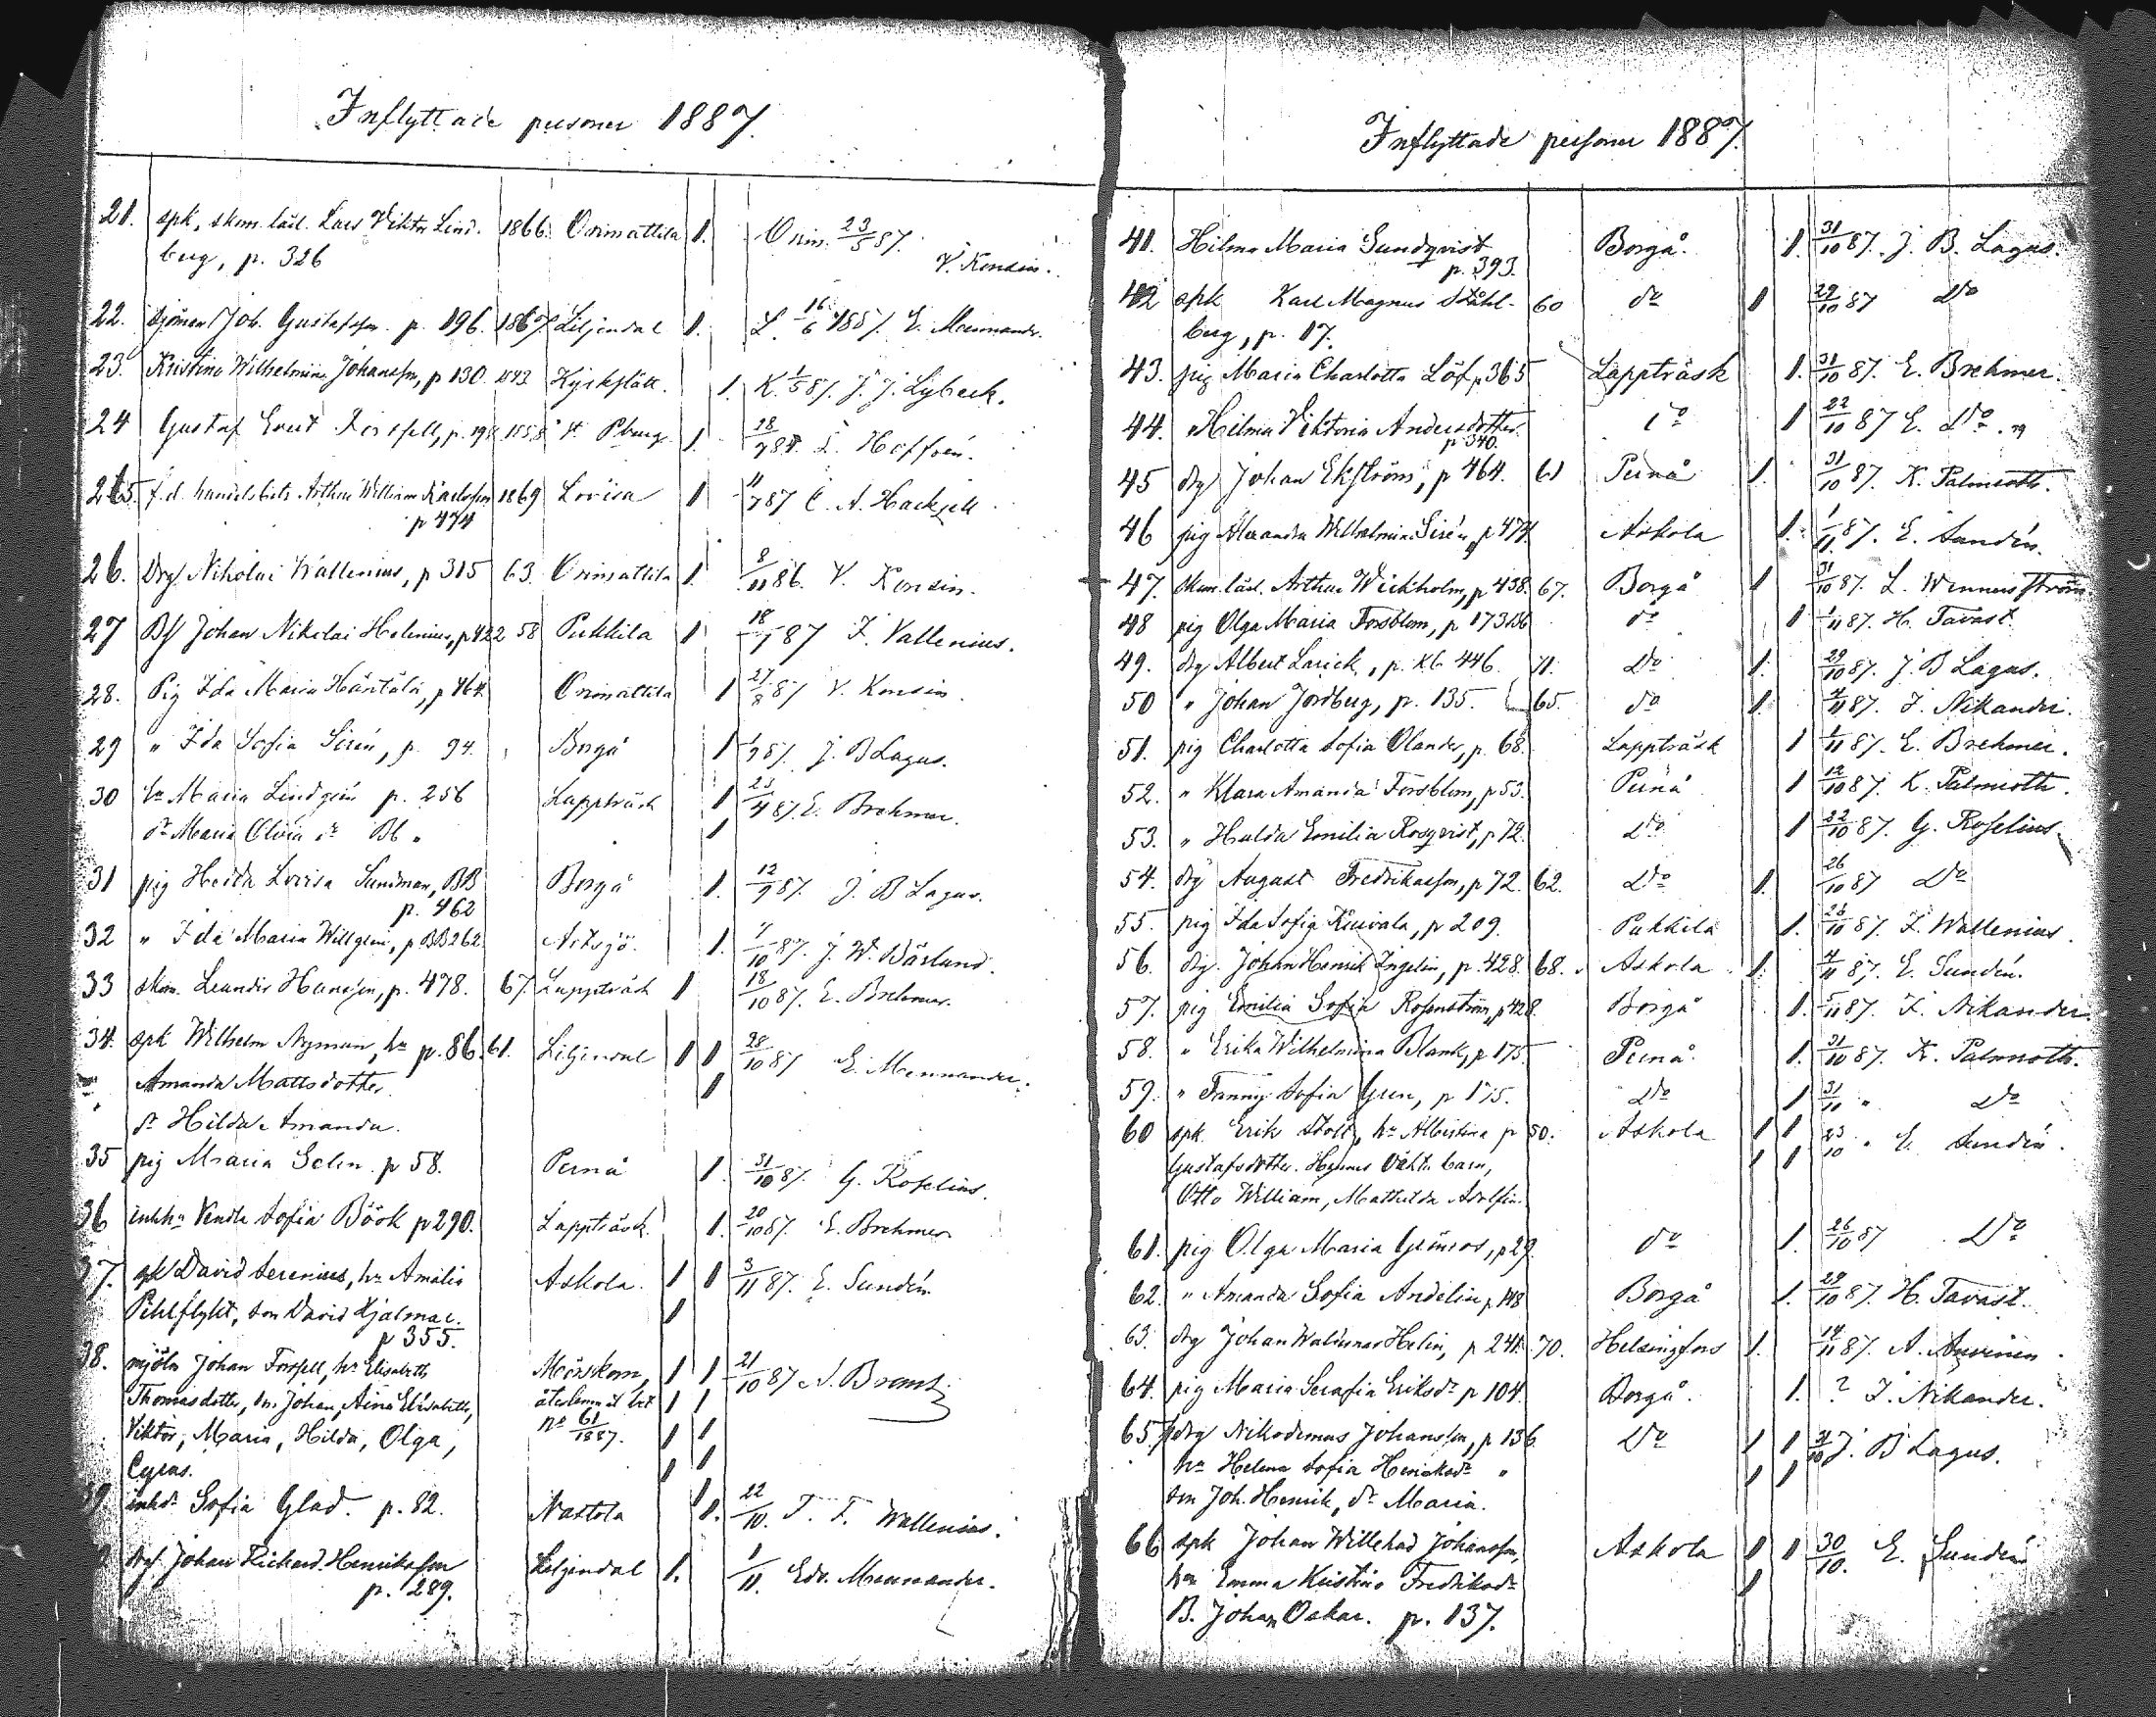 Inflyttade personer 1887.
21. spk, skom. lärl. Lars Viktor Lind- 1866. Orimattila 1. Orim. 23/5 87.
berg, p. 326 V. Konsin.
22. Sjöman Joh. Gustafsson p. 196. 1867 Liljendal 1. L. 16/6 1887. E. Mennander.
23. Kristina Wilhelmina Johansson, p 130. 1843 Kyrkslätt. 1. K. 1/5 87. J. J. Lybeck.
24 Gustaf Ernt p. 198 1858 St. Pburg. 1. 28/7 87.
25. f.d. handelsbetj. Arthur William Karlsson 1869 Lovisa 1 11/7 87 C. A. Hackzell
p 474
26. Drg. Nikolai Wallenius, p 315 63. Orimattila 1. 8/11 86. V. Konsin.
27 Johan Nikolai Helenius, p 422 58 Pukkila 1 18/7 87 F. Vallenius.
28. Pig Ida Maria Härtälä, p 464. Orimattila 1 27/8 87 V. Konsin.
29 " Ida Sofia Sirén, p. 94. Borgå 1 1/9 87. J. B Lagus.
30 hu Maria Lindgrén p. 256 Lappträsk 1 23/4 87. E. Brehmer.
dr Maria Olivia dr Bb " 1
31 pig Hedda Lovisa Sundman, BB Borgå 1. 12/9 87. J. B Lagus.
p. 462
32 " Ida Maria Willgren, p BB 262 Artsjö. 1. 7/10 87. J. W. Bärlund.
33 skom. Leander Hansson, p. 478. 67. Lappträsk 1 18/10 87. E. Brehmer.
34. spk Wilhelm Nyman, hu p. 86. 61. Liljendal 1 1 28/10 87 E. Mennander.
Amanda Mattsdotter. 1
dr Hilda Amanda.
35 pig Maria Selin. p 58. Pernå 1. 31/10 87. G. Roselius.
36 inhhu Vendla Sofia Böök p 290. Lappträsk. 1. 20/10 87. E. Brehmer
37. spk David Serenius, hu Amalia Askola. 1 1 3/11 87. E. Sundén.
Pihlflykt, son David Hjalmar. 1
p 355.
38. mjöln Johan Forssell, hu Elisabeth Mörskom, 1 1 21/10 87 A. Brant
Thomasdotter, bn. Johan, Aina Elisabeth, återlemn. åt bet 1 1
Viktor, Maria, Hilda, Olga, no 61/1887. 1 1
Cyrus. 1 1
39 inhdr Sofia Glad. p. 82. Nastola 1. 22/10. T. F. Wallenius.
Drg. Johan Richard Henriksson Liljendal 1. 1/11. Edv. Mennander.
p. 289.
Inflyttade personer 1887.
41. Hilma Maria Sundqvist Borgå. 1. 31/10 87. J. B. Lagus.
p. 393.
42 spk Karl Magnus Ståhl- 60 do 1 29/10 87 do
berg, p. 17.
43. pig Maria Charlotta Löf p 365 Lappträsk 1. 31/10 87. E. Brehmer.
44. " Hilma Viktoria Andersdotter. do 1 22/10 87 E. do
p 340.
45 drg Johan Ekström, p 464. 61 Pernå 1. 31/10 87. K. Palmroth.
46 pig Alexandra Wilhelmina Sirén, p 474 Askola 1. 1/11. 87. E. Sundén.
47. skom. lärl. Arthur Weckholm, p 438. 67. Borgå 1 31/10 87. L. Wennerström
48 pig Olga Maria Forsblom, p 173. do 1 1/11 87. H. Tavast.
49. drg Albert Larick, p. 446. 71. do 1. 29/10 87. J. B Lagus.
50 " Johan Jordberg, p. 135. 65. do 1. 4/11 87. F. Nikander.
51. pig Charlotta Sofia Olander, p. 68. Lappträsk 1 1/11 87. E. Brehmer.
52. " Klara Amanda Forsblom, p 53. Pernå 1 12/10 87. K. Palmroth.
53. " Hulda Emilia Rosqvist, p 72. do 1 22/10 87. G. Roselius
54. drg August Fredriksson, p 72. 62. do 1. 26/10 87 do
55. pig Ida Sofia Kuivala, p 209. Pukkila 1. 28/10 87. F. Wallenius.
56. drg. Johan Henrik Ingelin, p. 428. 68. Askola 1. 4/11 87. E. Sundén.
57. pig Emilia Sofia Rosenström, p 428. Borgå 1. 5/11 87. F. Nikander.
58. " Erika Wilhelmina Blank, p 175. Pernå. 1. 31/10 87. K. Palmroth.
59. " Fanny Sofia Gren, p 175. do 1 31/10 " do
60 spk. Erik Stolt, hu Albertina p 50. Askola 1 1 23/10 " E. Sundén.
Gustafsdotter. Hennes oäkta barn, 1 1
Otto William, Mathilda Adolfin.
61. pig Olga Maria Grönros, p 29. do 1. 26/10 87 do
62. " Amanda Sofia Andelin p. 148 Borgå 1. 29/10 87. H. Tavast.
63. drg Johan Waldemar Helin, p 241. 70. Helsingfors 1. 14/11 87. A. Auvinen.
64. pig Maria Serafia Eriksdr p 104. Borgå. 1. ? F. Nikander.
65. drg Nikodemus Johansson, p 136. do 1 1 31/10 J. B Lagus.
hu Helena Sofia Henriksdr " 1 1
son Joh. Henrik, dr Maria.
66 spk Johan Willehad Johansson, Askola 1 1 30/10. E. Sundén
hu Emma Kristina Fredriksdr 1
B. Johan Oskar. p. 137.